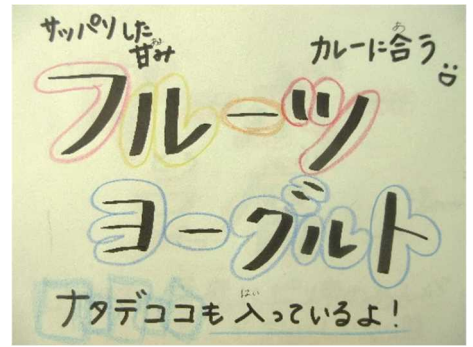 サッパリした
甘み
カレーに合う
フルーツ
ヨーグルト
ナタデココも入っているよ!